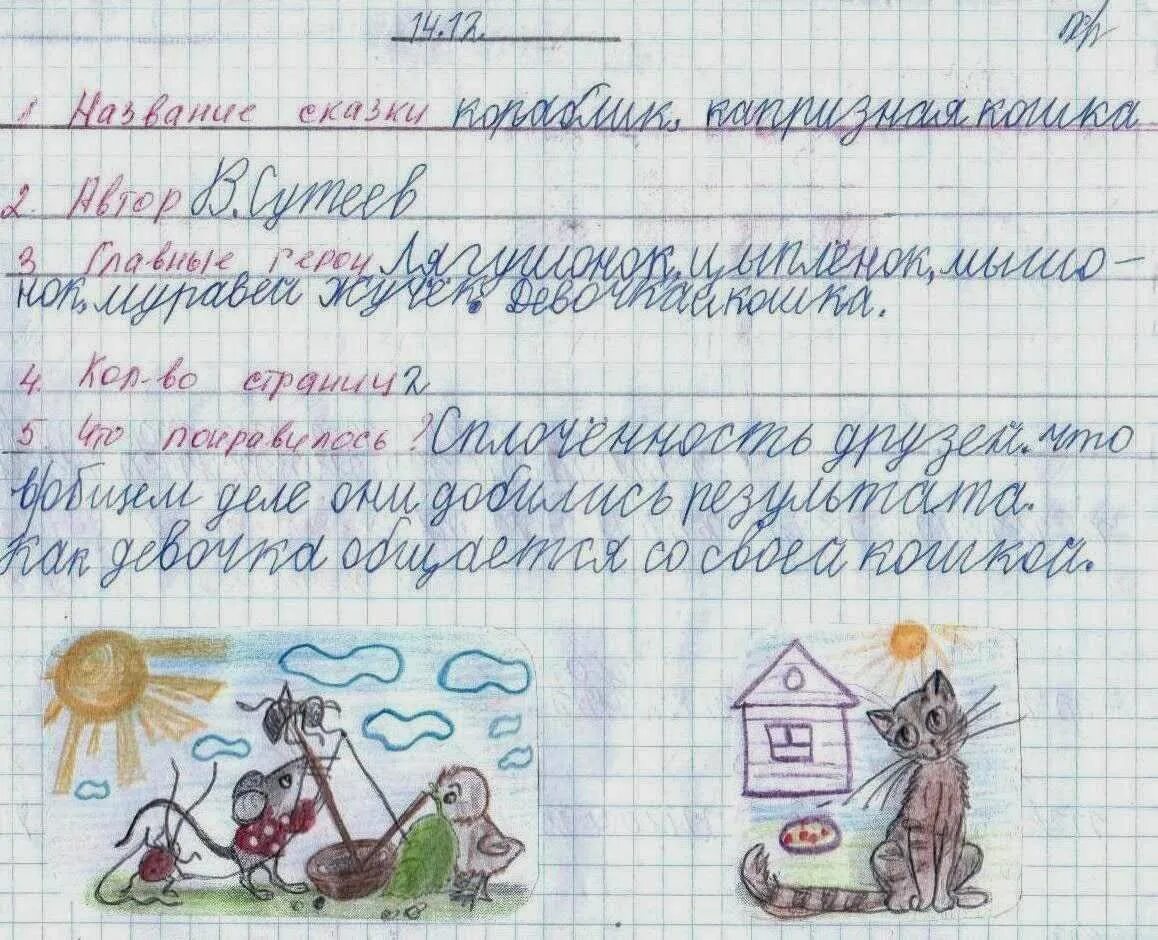 14.12.
1 Название сказки кораблик, капризная кошка
2. Автор В. Сутеев
3 Главные герои Лягушонок, цыплёнок, мышо-
нок, муравей жучек. Девочка и кошка.
4. Кол-во страниц 2
5. Что понравилось? Сплочённость друзей. что
в общем деле они добились результата.
Как девочка общается со своей кошкой.